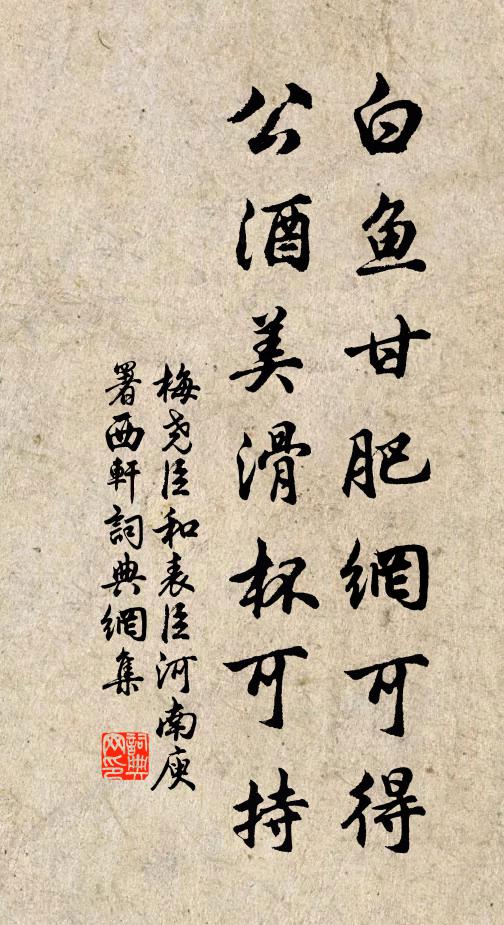 白鱼甘肥網可得
公酒美滑杯可持
梅尧臣和表臣河南庾
署西軒詞典網集
詞典网印